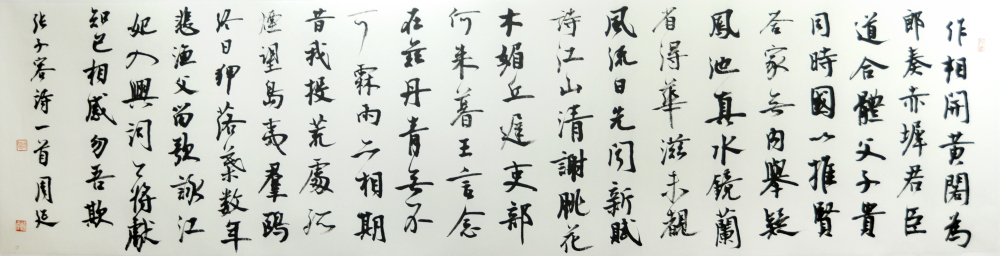 作相開黃閣為
郎奏赤墀君臣
道合體父子貴
同時國以推賢
答家无內舉疑
鳳池真水鏡蘭
省得華滋未覯
風流日先聞新賦
詩江山清謝朓花
木媚丘遲吏部
何來暮王言念
在茲丹青无不
可霖雨亦相期
昔我投荒處孤
煙望島夷羣鷗
終日狎落葉数年
悲漁父留歌詠江
妃入興詞今將獻
知己相感勿吾欺
張子容詩一首周延